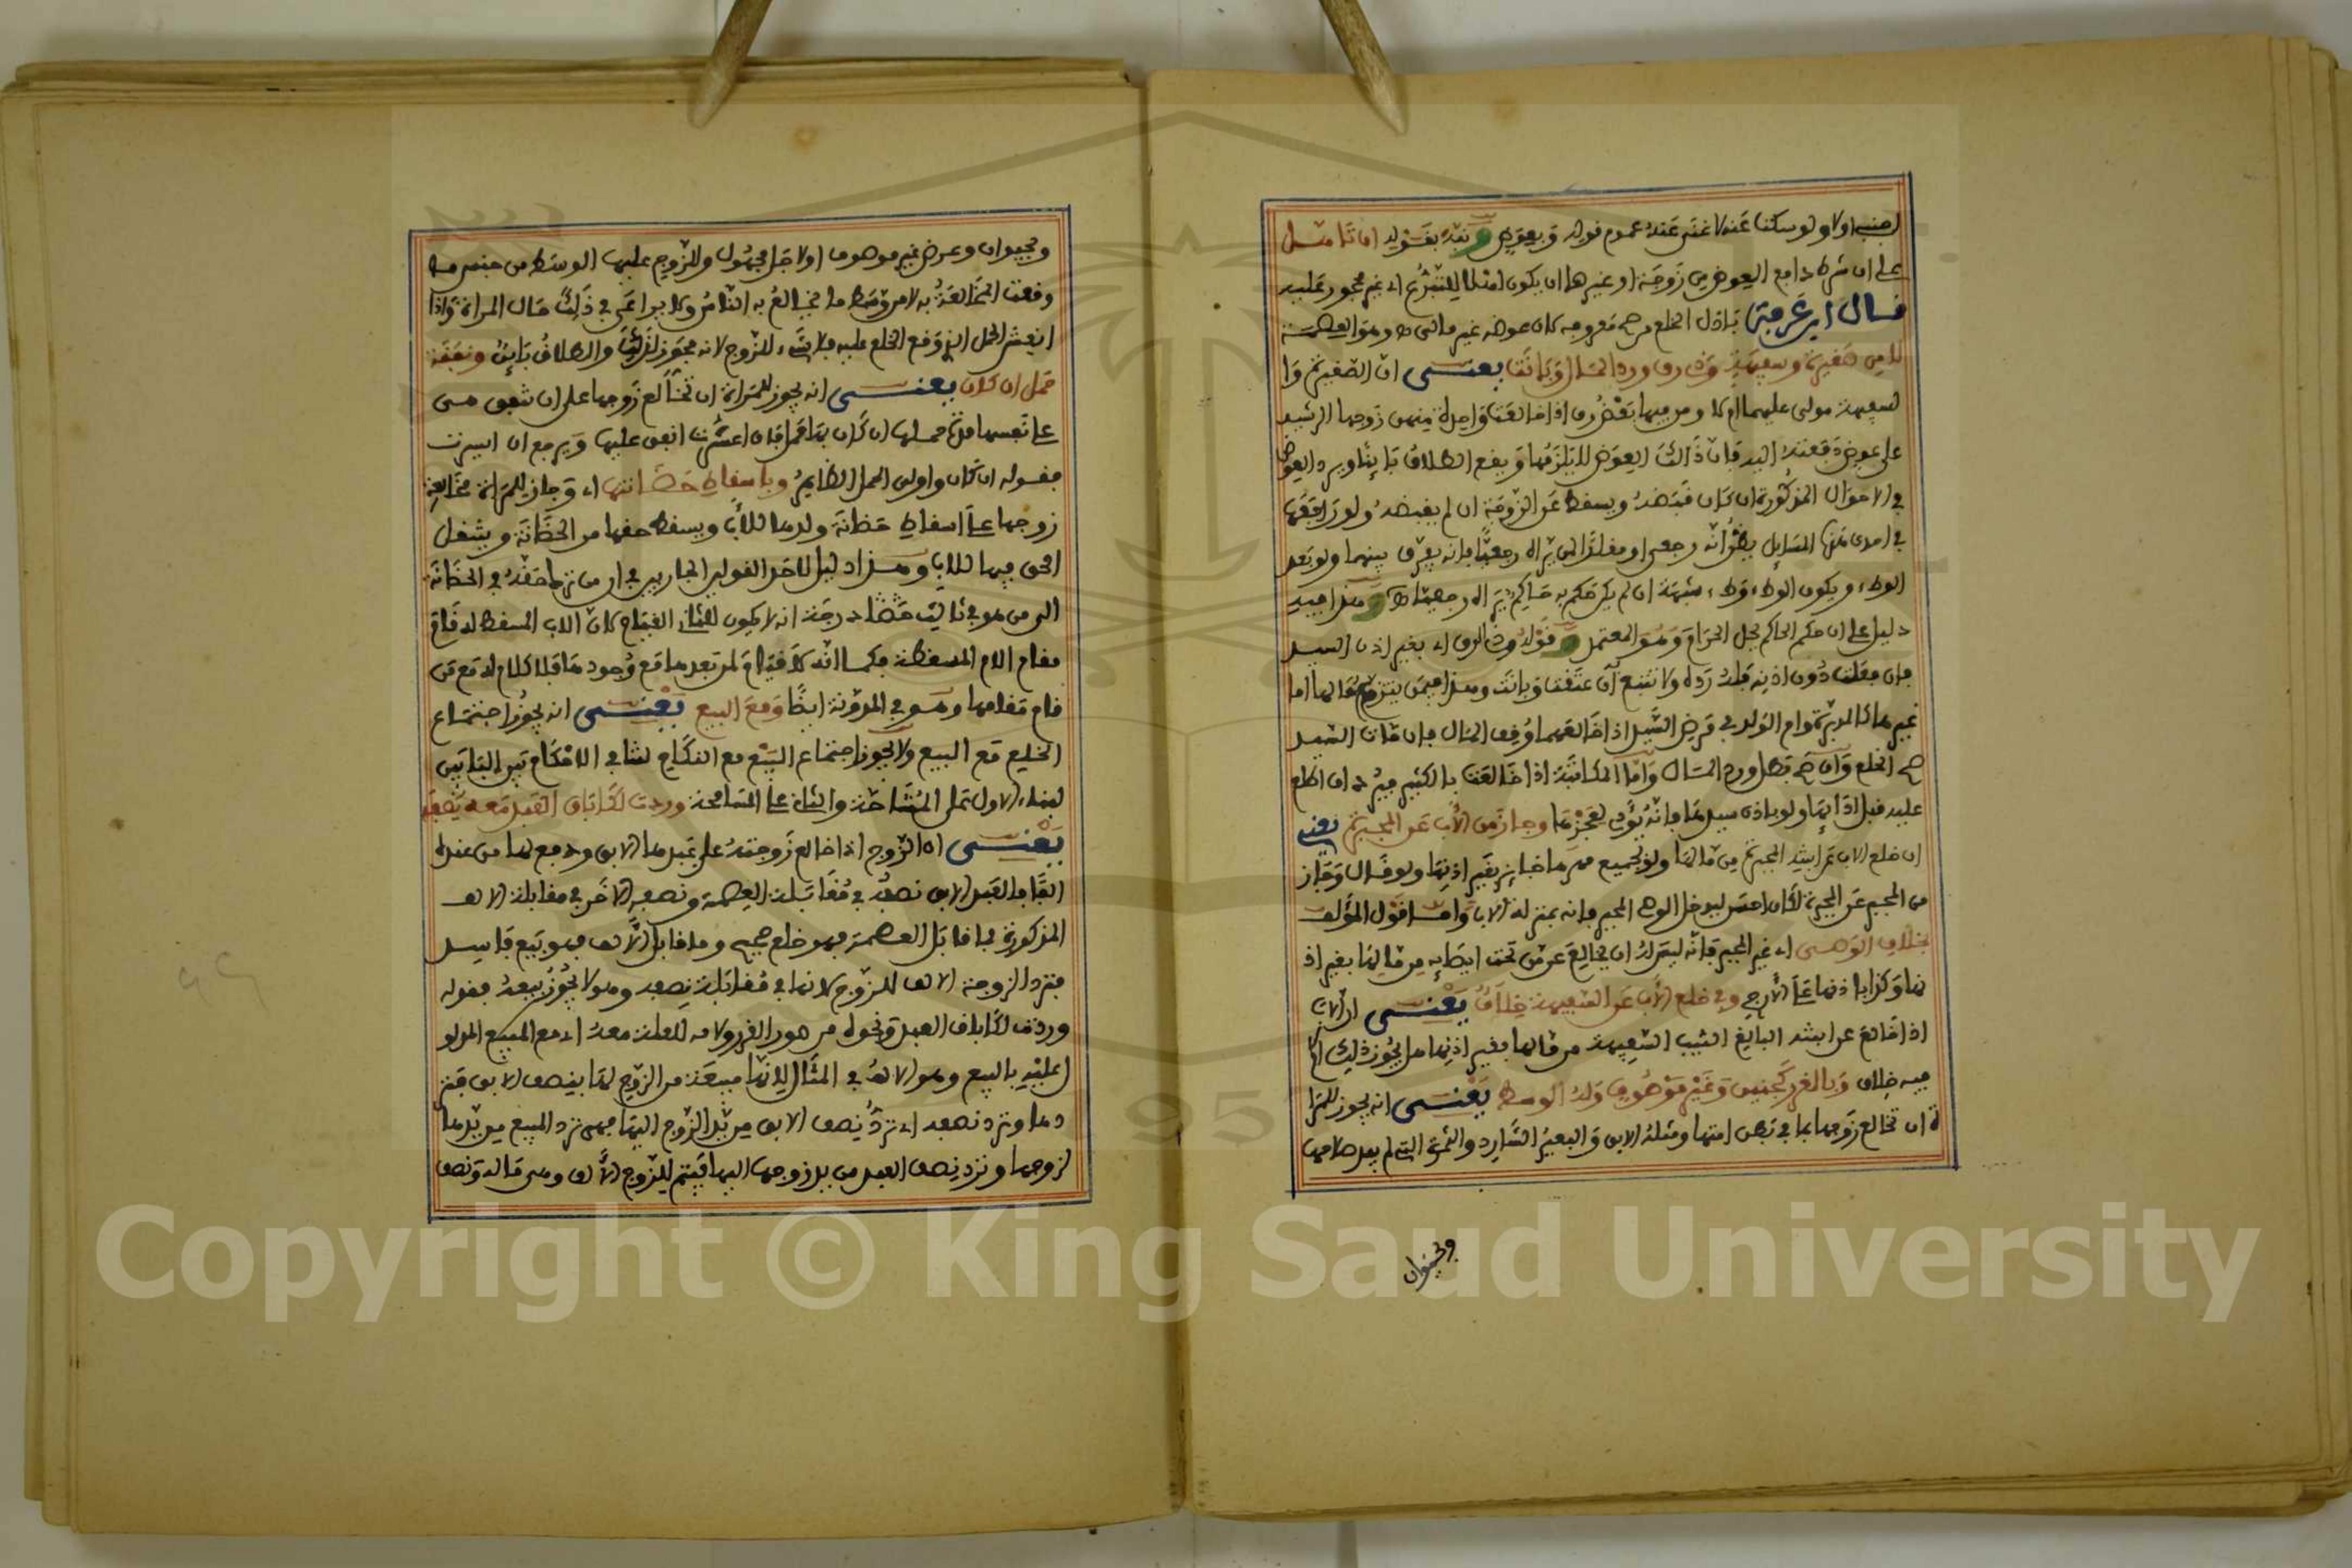 اجنبيا ولا ولو سكتا عنه لاغنى عنه عموم قوله وبعوض ونبه بقوله ان تاهل
على ان شرط دافع العوض من زوجة او غيرها ان يكون اهلا للتبرع اي غير محجور عليه
قال ابن عرفة باذل الخلع من صح معروفه كان عوضه غير مالى وهو العصمة
لا من صغيرة وسفيهة وذي رق ورد المال وبانت يعنى ان الصغيرة وا
لسفيهة مولى عليها ام لا ومن فيها بعض رق اذا خالعت واحدة منهن زوجها الرشيد
على عوض دفعته اليه فان ذالك العوض لا يلزمها ويقع الطلاق بائنا ويرد العوض
في الاحوال المذكورة ان كان قبضه ويسقط عن الزوجة ان لم يقبضه ولو رافعها
في احدى هذه المسايل يظن انه رجعي او مقلدا لمن يراه رجعيا فانه يفرق بينهما ولو بعد
الوطء ويكون الوطء وطء شبهة ان لم يكن حكم به حاكم يراه رجعيا وهذا فيه
دليل على ان حكم الحاكم يحل الحرام وهو المعتمد وقوله وذ الرق اي بغير اذن السيد
فان فعلت دون اذنه فله رده ولا تتبع ان عتقت وبانت وهذا فيمن ينتزع مالها اما
غيرها كالمدبرة وام الولد في مرض السيد اذا خالعهما وقف المال فان مات السيد
صح الخلع وان صح بطل ورد المال واما المكاتبة اذا خالعت بالكثير فيرد ان اطلع
عليه قبل ادائها ولو باذن سيدها فانه يؤدي لعجزها وجاز من الأب عن المجبرة يعني
ان خلع الاب عن ابنته المجبرة من مالها ولو بجميع مهرها جايز بغير اذنها ولو قال وجاز
من المجبر عن المجبرة لكان احسن ليدخل الوصي المجبر فانه بمنزلة الاب واما قول المؤلف
بخلاف الوصي اي غير المجبر فانه ليس له ان يخالع عن من تحت ايصائه من مالها بغير اذ
نها وكذا باذنها على الأرجح وفي خلع الأب عن السفيهة خلاف يعنى ان الاب
اذا خالع عن ابنته البالغ الثيب السفيهة من مالها بغير اذنها هل يجوز ذلك ام لا
فيه خلاف وبالغرر كجنين وغير موصوف وله الوسط يعنى انه يجوز للمرا
ة ان تخالع زوجها بما في بطن امتها ومثله الابق والبعير الشارد والثمرة التي لم يبد صلاحها
وبحيوان
وبحيوان وعرض غير موصوف اولاجل مجهول وللزوج عليها الوسط من جنس ما
وقعت المخالعة به لا من وسط ما يخالع به الناس ولا يراعى في ذلك حال المراة واذا
انفش الحمل الذي وقع الخلع عليه فلا شيء للزوج لانه مجوز لذلك والطلاق بائن ونفقة
حمل ان كان يعنى انه يجوز للمراة ان تخالع زوجها على ان تنفق هى
على نفسها مدة حملها ان كان بها حمل فان اعسرت انفق عليها ويرجع ان ايسرت
فقوله ان كان واولى الحمل الظاهر وباسقاط حضانتها اي وجاز للمراة مخالعة
زوجها على اسقاط حضانة ولدها للاب ويسقط حقها من الحضانة وينتقل
الحق فيها للاب وهذا دليل لاحد القولين الجاريين في ان من نزل حقه في الحضانة
الى من هو في ثالث درجة انه لا يكون للثاني القيام كان الاب المسقط له قام
مقام الام المسقطة فكما انه لا قيام لمن بعدها مع وجودها فلا كلام له مع من
قام مقامها وهو في المدونة ايضا ومع البيع يعنى انه يجوز اجتماع
الخلع مع البيع ولا يجوز اجتماع البيع مع النكاح لتنافي الاحكام بين البابين
لبناء الاول على المشاحة والثاني على المسامحة وردت لكاباق العبد معه نصفه
يعنى ان الزوج اذا خالع زوجته على عبدها الابق ودفع لها من عنده
الفا فالعبد الابق نصفه في مقابلة العصمة ونصفه الاخر في مقابلة الالف
المذكورة فما قابل العصمة فهو خلع صحيح وما قابل الالف فهو بيع فاسد
فترد الزوجة الالف للزوج لانها في مقابلة نصفه وهو لا يجوز بيعه فقوله
وردت لكاباق العبد ونحوه من صور الغرر ولامه للعلة معه اي مع المبيع المدلو
ل عليه بالبيع وهو الالف في المثال لانها مبيعة من الزوج لها بنصف الابق فتر
دها وترد نصفه اي ترد نصف الابق من يد الزوج اليها فهى ترد المبيع من يدها
لزوجها وترد نصف العبد من يد زوجها اليها فيتم للزوج الألف وهى ماله ونصف
Copyright © King Saud University